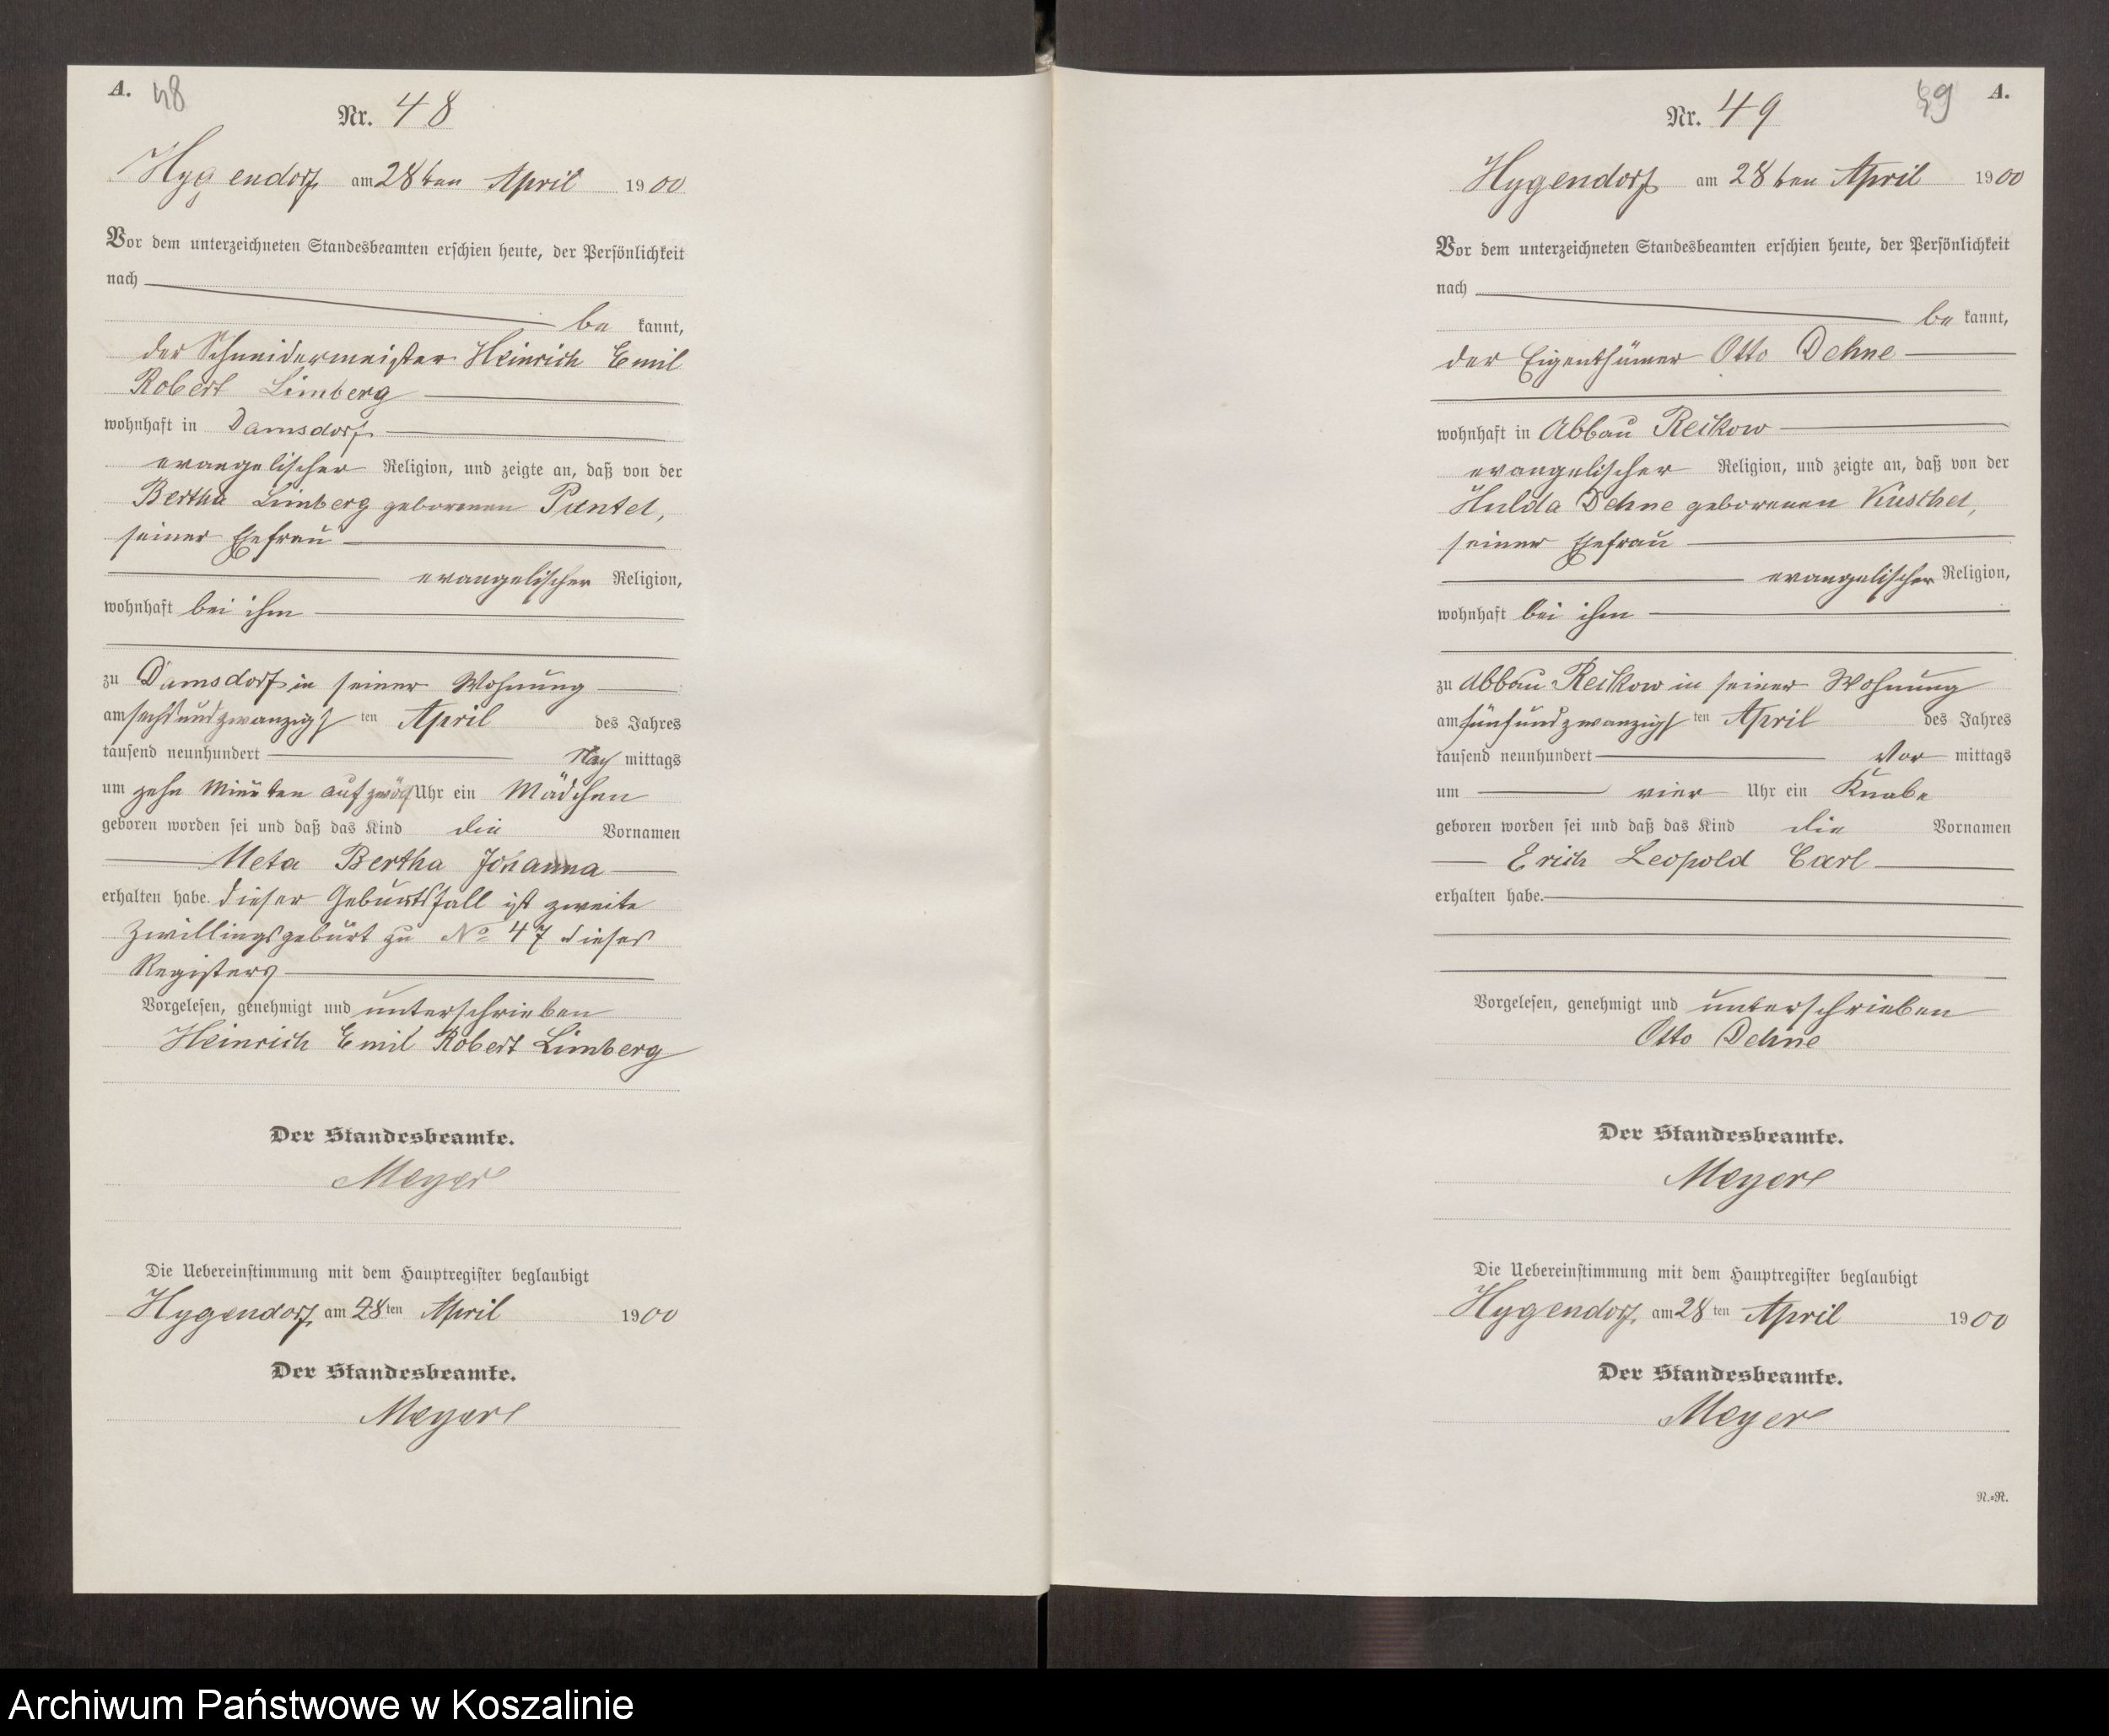 A. 48
Nr. 48
Hygendorf am 28ten April 1900
Vor dem unterzeichneten Standesbeamten erschien heute, der Persönlichkeit
nach
be kannt,
der Schneidermeister Heinrich Emil
Robert Limberg
wohnhaft in Damsdorf
evangelischer Religion, und zeigte an, daß von der
Bertha Limberg geborenen Pantel,
seiner Ehefrau
evangelischer Religion,
wohnhaft bei ihm
zu Damsdorf in seiner Wohnung
am sechsundzwanzigsten April des Jahres
tausend neunhundert Nach mittags
um zehn Minuten auf zwölf Uhr ein Mädchen
geboren worden sei und daß das Kind die Vornamen
Meta Bertha Johanna
erhalten habe. Dieser Geburtsfall ist zweite
Zwillingsgeburt zu No 47 dieses
Registers
Vorgelesen, genehmigt und unterschrieben
Heinrich Emil Robert Limberg
Der Standesbeamte.
Meyer
Die Uebereinstimmung mit dem Hauptregister beglaubigt
Hygendorf, am 28ten April 1900
Der Standesbeamte.
Meyer
49 A.
Nr. 49
Hygendorf am 28ten April 1900
Vor dem unterzeichneten Standesbeamten erschien heute, der Persönlichkeit
nach
be kannt,
der Eigenthümer Otto Dehne
wohnhaft in Abbau Reikow
evangelischer Religion, und zeigte an, daß von der
Hulda Dehne geborenen Kuschel,
seiner Ehefrau
evangelischer Religion,
wohnhaft bei ihm
zu Abbau Reikow in seiner Wohnung
am fünfundzwanzigsten April des Jahres
tausend neunhundert Vor mittags
um vier Uhr ein Knabe
geboren worden sei und daß das Kind die Vornamen
Erich Leopold Carl
erhalten habe.
Vorgelesen, genehmigt und unterschrieben
Otto Dehne
Der Standesbeamte.
Meyer
Die Uebereinstimmung mit dem Hauptregister beglaubigt
Hygendorf, am 28ten April 1900
Der Standesbeamte.
Meyer
N.=R.
Archiwum Państwowe w Koszalinie